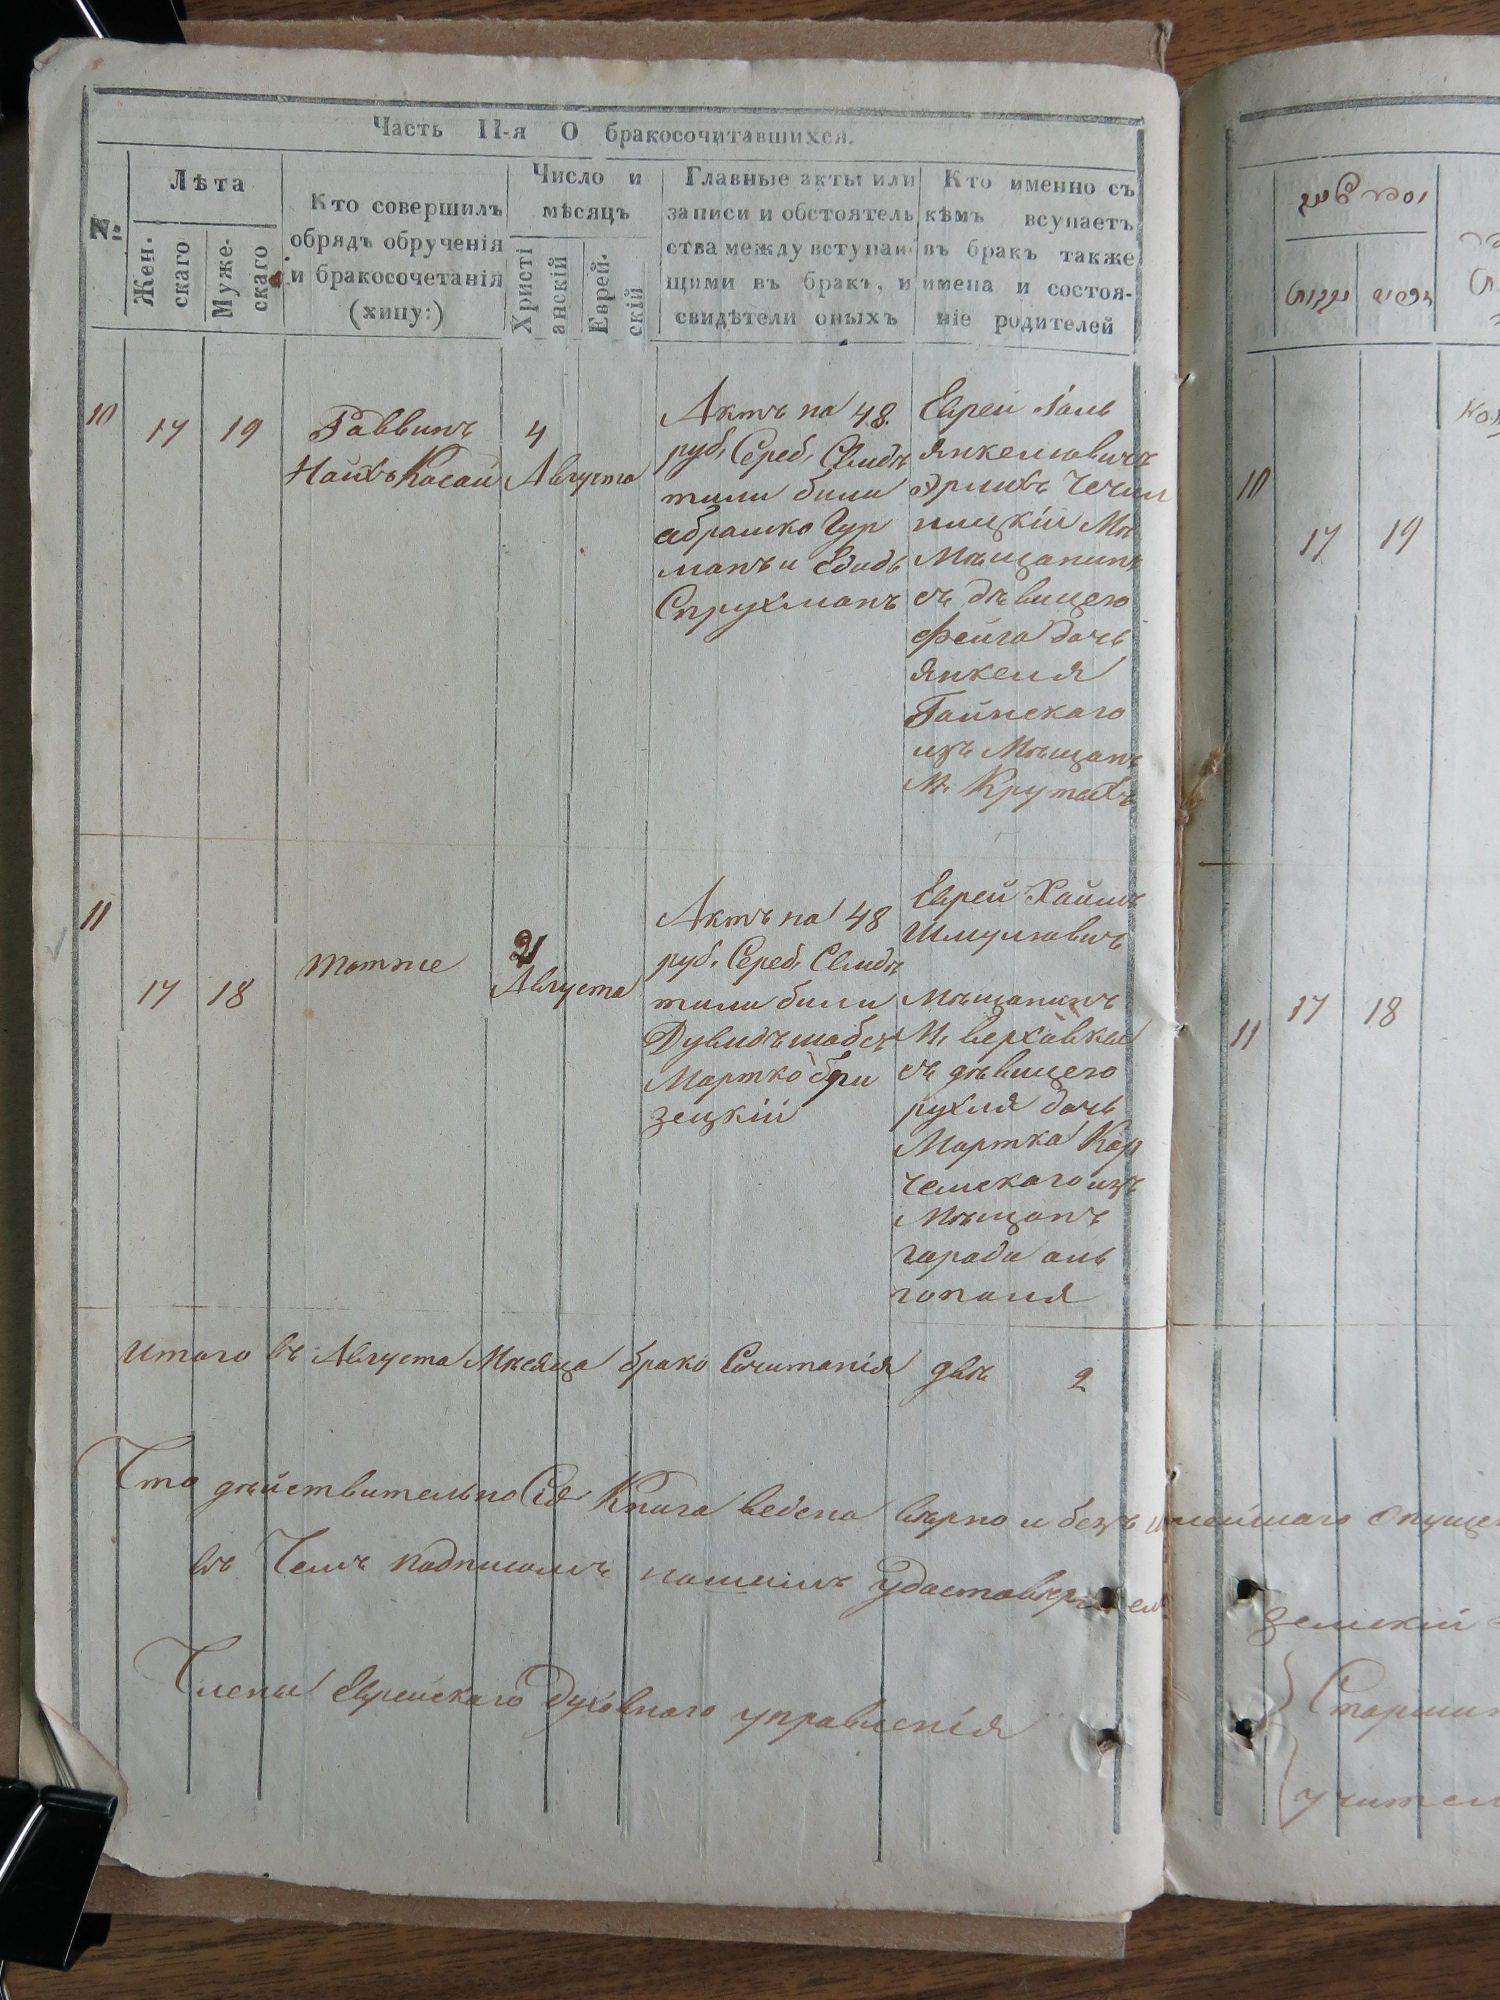 Часть II-я О бракосочитавшихся.
№
Лѣта
Жен-
скаго
Муже-
скаго
Кто совершилъ
обрядъ обрученія
и бракосочетанія
(хипу:)
Число и
мѣсяцъ
Христі
анскій
Еврей-
скій
Главные акты или
записи и обстоятель
ства между вступаю-
щими въ бракъ, и
свидѣтели оныхъ
Кто именно съ
кѣмъ всупаетъ
въ бракъ также
имена и состоя-
ніе родителей
10
17
19
Раввинъ
4
Августа
Актъ на 48
руб. Сереб. Свидѣ
тили били
абрамко Гур
манъ и
Струхманъ
Еврей
Янкелювичъ
Эрлихъ Чечил
ницкій Мѣ
Мѣщанинъ
съ дѣвицею
Фейга дочь
Янкеля
Гайнскаго
изъ Мѣщанъ
М. Крутыхъ
11
17
18
тотже
21
Августа
Актъ на 48
руб. Сереб. Свидѣ
тили били
Дувидъ
Мортко
зецкій
Еврей Хаимъ
Шмулювичъ
Мѣщанинъ
М. Верховки
съ дѣвицею
рухля дочь
Мортка Кор
чемскаго изъ
Мѣщанъ
города оль
гополя
итого въ Августа Мѣсяца брако Сочитанія двѣ 2
Что дѣйствительно Сія Книга ведена вѣрно и безъ опуще
въ Чемъ подписомъ нашимъ
Члены Еврейскаго Духовнаго управленія
10
17
19
11
17
18
земскій
Старши
учител